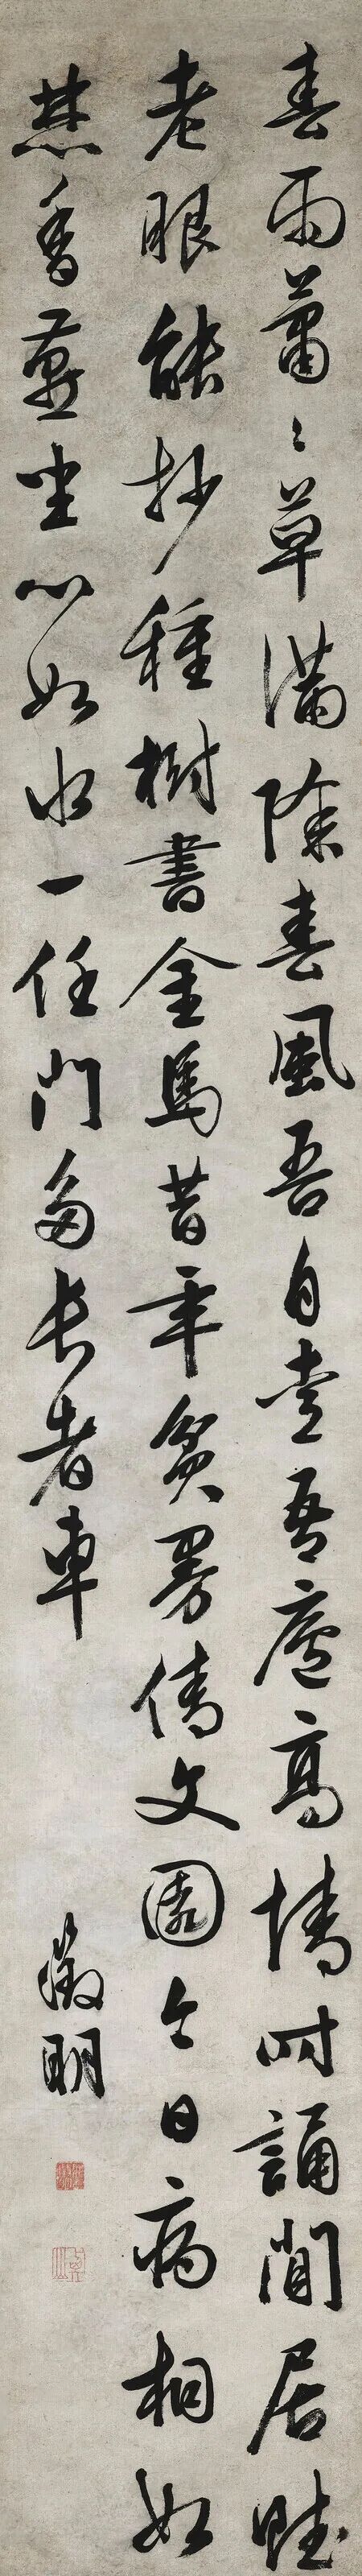 春雨蕭〻草滿除春風吾自愛吾廬高情時誦閒居賦
老眼能抄種樹書金馬昔年貧曼倩文園今日病相如
焚香燕坐心如水一任門多長者車
徵明